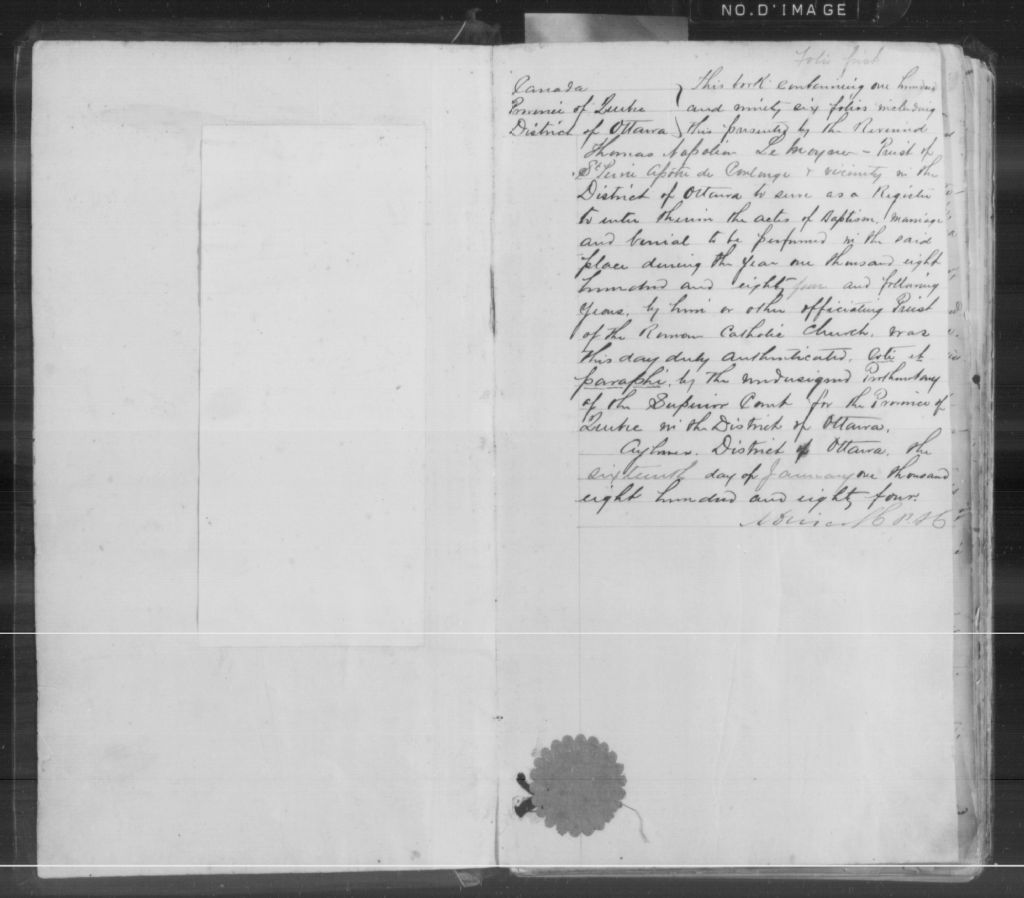 NO. D'IMAGE
Folio first
Canada
Province of Quebec
District of Ottawa
This book containing one hundred
and ninety six folios including
this presented by the Reverend
Thomas Napoléon Le Moyne - Priest of
St. Pierre Apotre de & vicinity in the
District of Ottawa to serve as a Register
to enter therein the actes of Baptism, marriage
and burial to be performed in the said
place during the year one thousand eight
hundred and eighty four and following
years, by him or other officiating Priest
of the Roman Catholic Church, was
this day duly authenticated, Coté et
paraphé, by the undersigned Prothonotary
of the Superior Court for the Province of
Quebec in the District of Ottawa.
Aylmer, District of Ottawa, the
sixteenth day of January one thousand
eight hundred and eighty four.